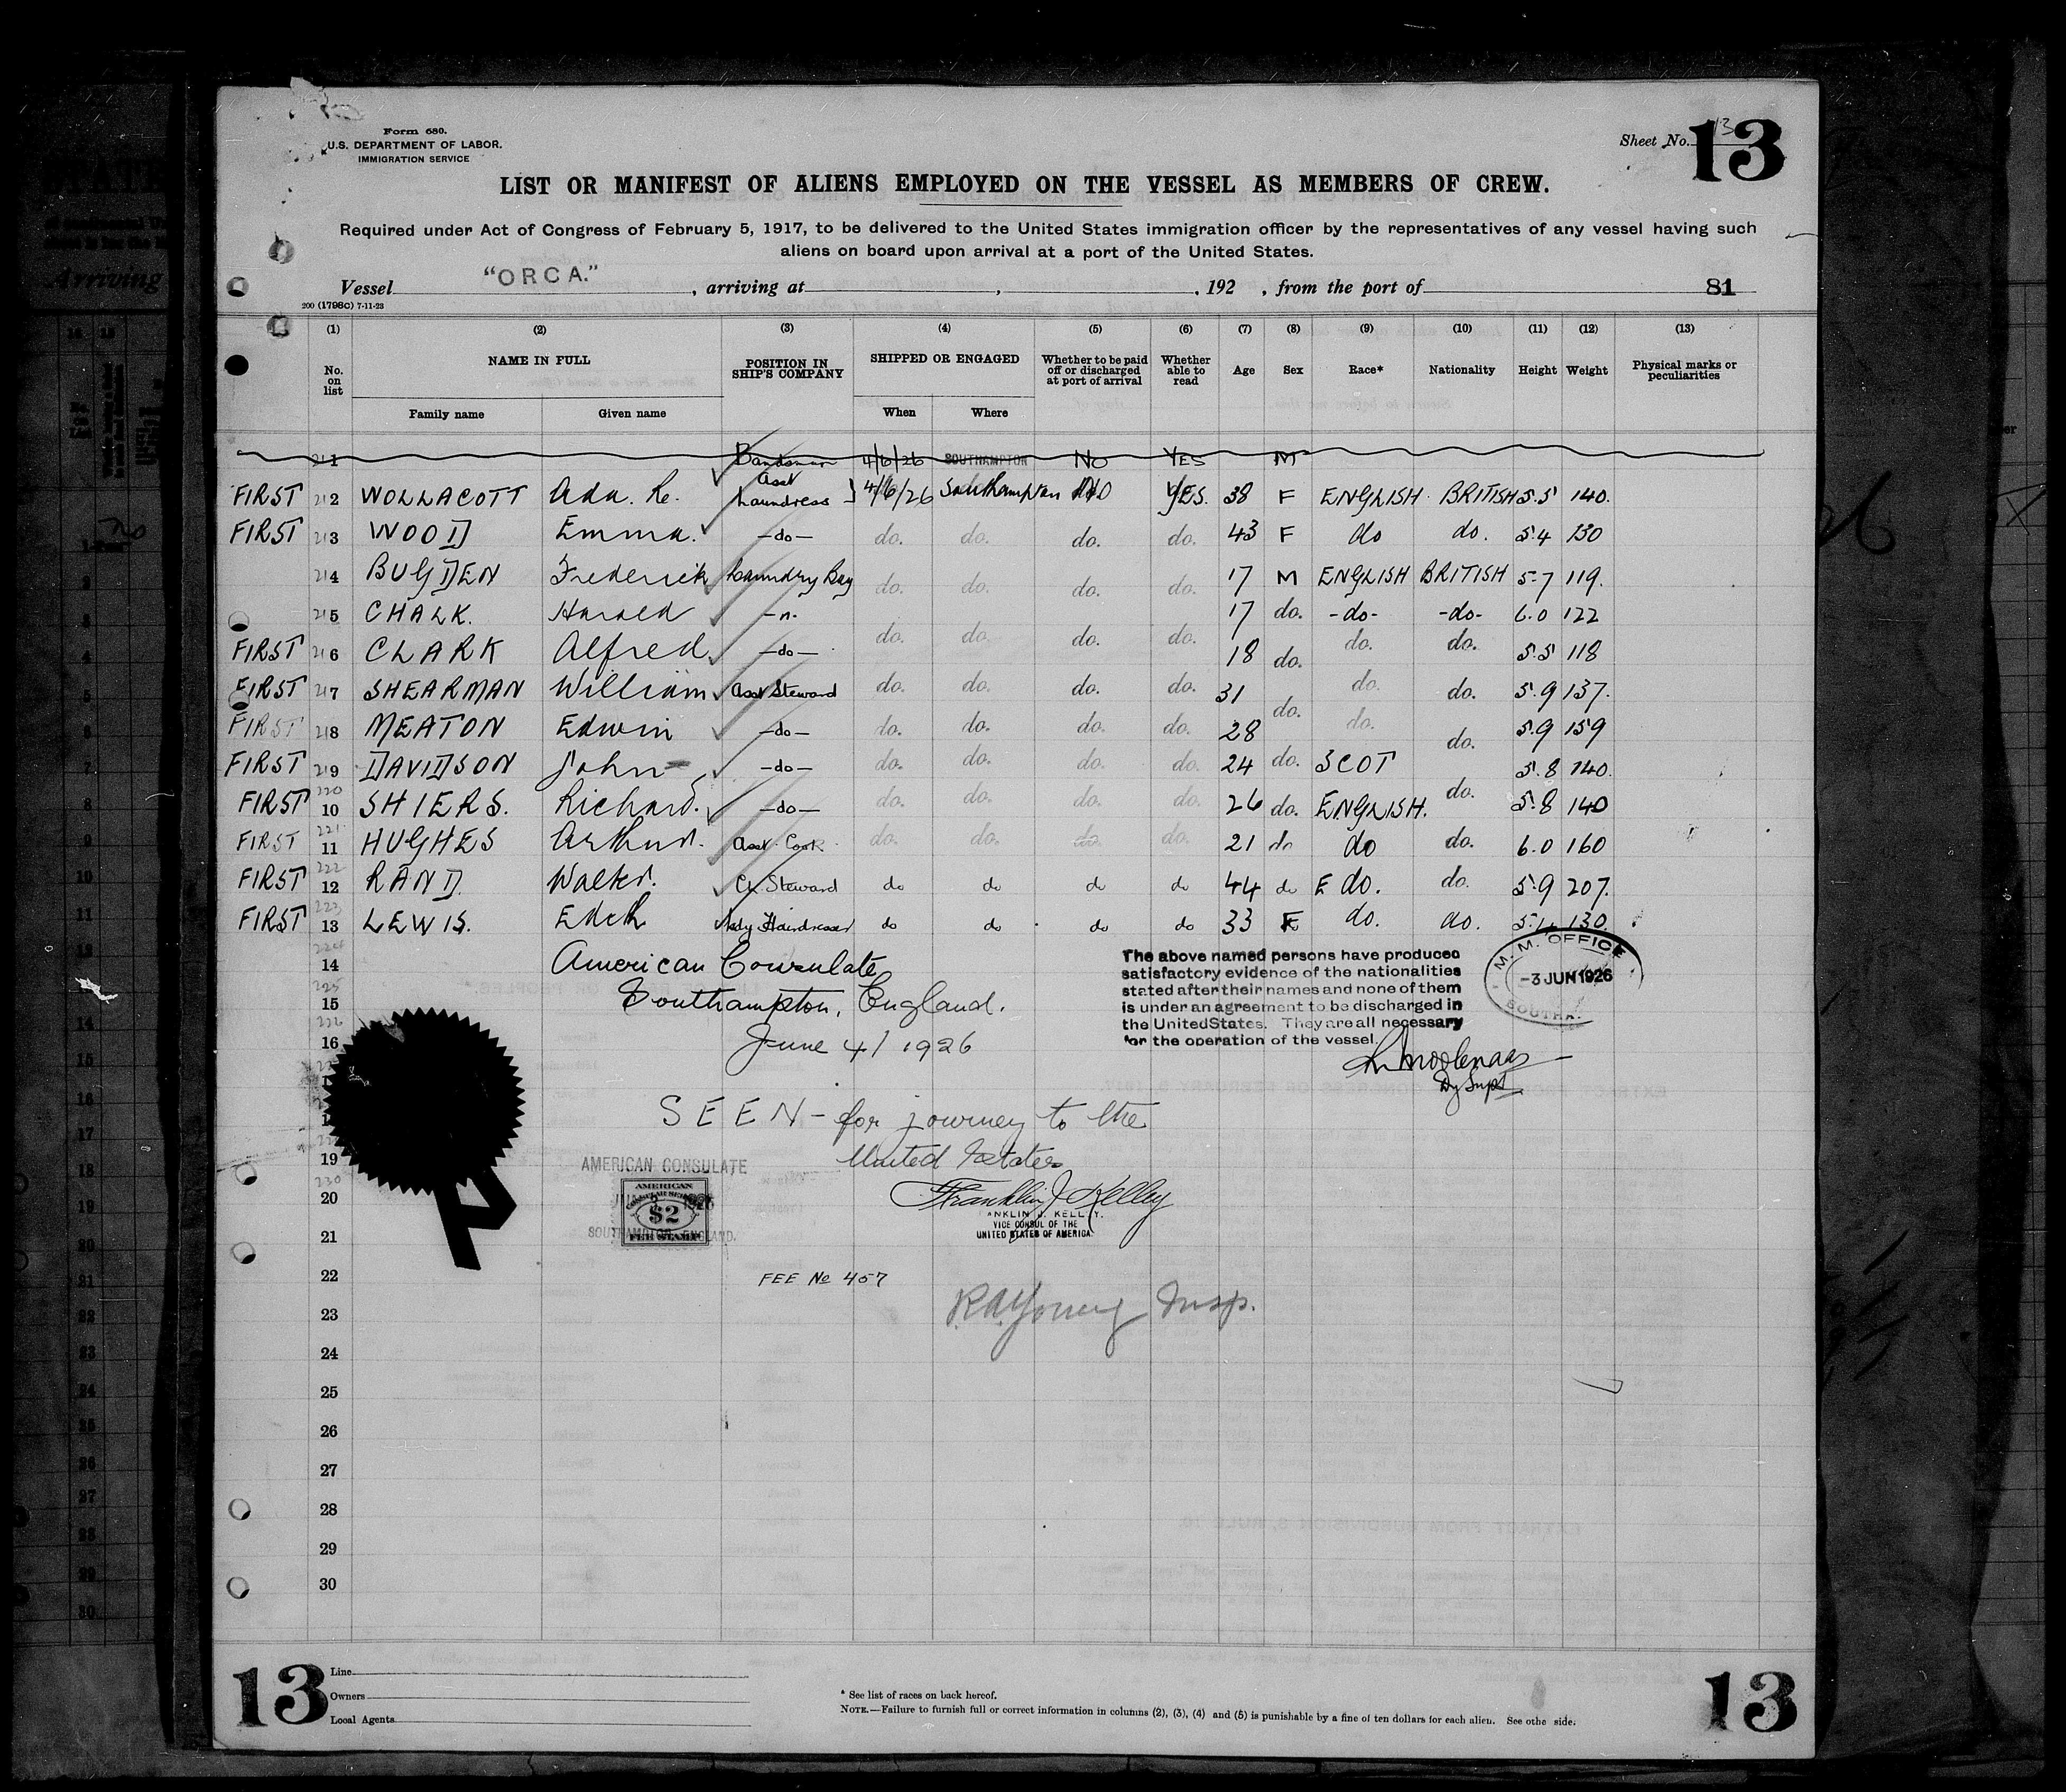 Form 680.
U.S. DEPARTMENT OF LABOR.
IMMIGRATION SERVICE
Sheet No. 13
13
LIST OR MANIFEST OF ALIENS EMPLOYED ON THE VESSEL AS MEMBERS OF CREW.
Required under Act of Congress of February 5, 1917, to be delivered to the United States immigration officer by the representatives of any vessel having such
aliens on board upon arrival at a port of the United States.
Vessel "ORCA." , arriving at , , 192 , from the port of 81
200 (1798c) 7-11-23
(1) (2) (3) (4) (5) (6) (7) (8) (9) (10) (11) (12) (13)
No. on list NAME IN FULL POSITION IN SHIP'S COMPANY SHIPPED OR ENGAGED Whether to be paid off or discharged at port of arrival Whether able to read Age Sex Race* Nationality Height Weight Physical marks or peculiarities
Family name Given name When Where
211 Bandsman 4/6/26 SOUTHAMPTON NO YES M
FIRST 212 WOLLACOTT Ada. Asst Laundress 4/6/26 Southampton NO YES. 38 F ENGLISH BRITISH 5.5 140.
FIRST 213 WOOD Emma. -do- do. do. do. do. 43 F do do. 5.4 130
214 BUGDEN Frederick Laundry Boy do. do. do. do. 17 M ENGLISH BRITISH 5-7 119.
215 CHALK. Harold -"- 17 do. -do- -do- 6.0 122
FIRST 216 CLARK Alfred -do- do. do. do. do. 18 do. do. do. 5.5 118
FIRST 217 SHEARMAN William Asst Steward do. do. do. do. 31 do. do. do. 5.9 137.
FIRST 218 MEATON Edwin -do- do. do. do. do. 28 do. do. 5.9 159
FIRST 219 DAVIDSON John -do- do. do. do. do. 24 do. SCOT do. 5.8 140.
FIRST 220 10 SHIERS. Richard. -do- do. do. do. do. 26 do. ENGLISH. do. 5.8 140
FIRST 221 11 HUGHES Arthur. Asst. Cook do. do. do. do. 21 do do do. 6.0 160
FIRST 222 12 RAND. Walter. Ch. Steward do do do do 44 do E do. do. 5.9 207.
FIRST 223 13 LEWIS. Edith Lady Hairdresser do do do do 33 F do. do. 5.4 130.
224 14 American Consulate
225 15 Southampton, England.
226 16 June 4/ 1926
The above named persons have produced
satisfactory evidence of the nationalities
stated after their names and none of them
is under an agreement to be discharged in
the United States. They are all necessary
for the operation of the vessel.
M.M. OFFICE
-3 JUN 1926
SOUTH
Dy Supt
SEEN - for journey to the
19 United States
AMERICAN CONSULATE
230 20
AMERICAN
CONSULAR SERVICE
$2
FEE STAMP
SOUTHAMPTON, ENGLAND.
Franklin J Kelley
ANKLIN J. KELLEY.
VICE CONSUL OF THE
UNITED STATES OF AMERICA
21
22 FEE No 457
23 R.A. Young Insp.
24
25
26
27
28
29
30
13
Line
Owners
Local Agents
* See list of races on back hereof.
NOTE.—Failure to furnish full or correct information in columns (2), (3), (4) and (5) is punishable by a fine of ten dollars for each alien. See othe side.
13